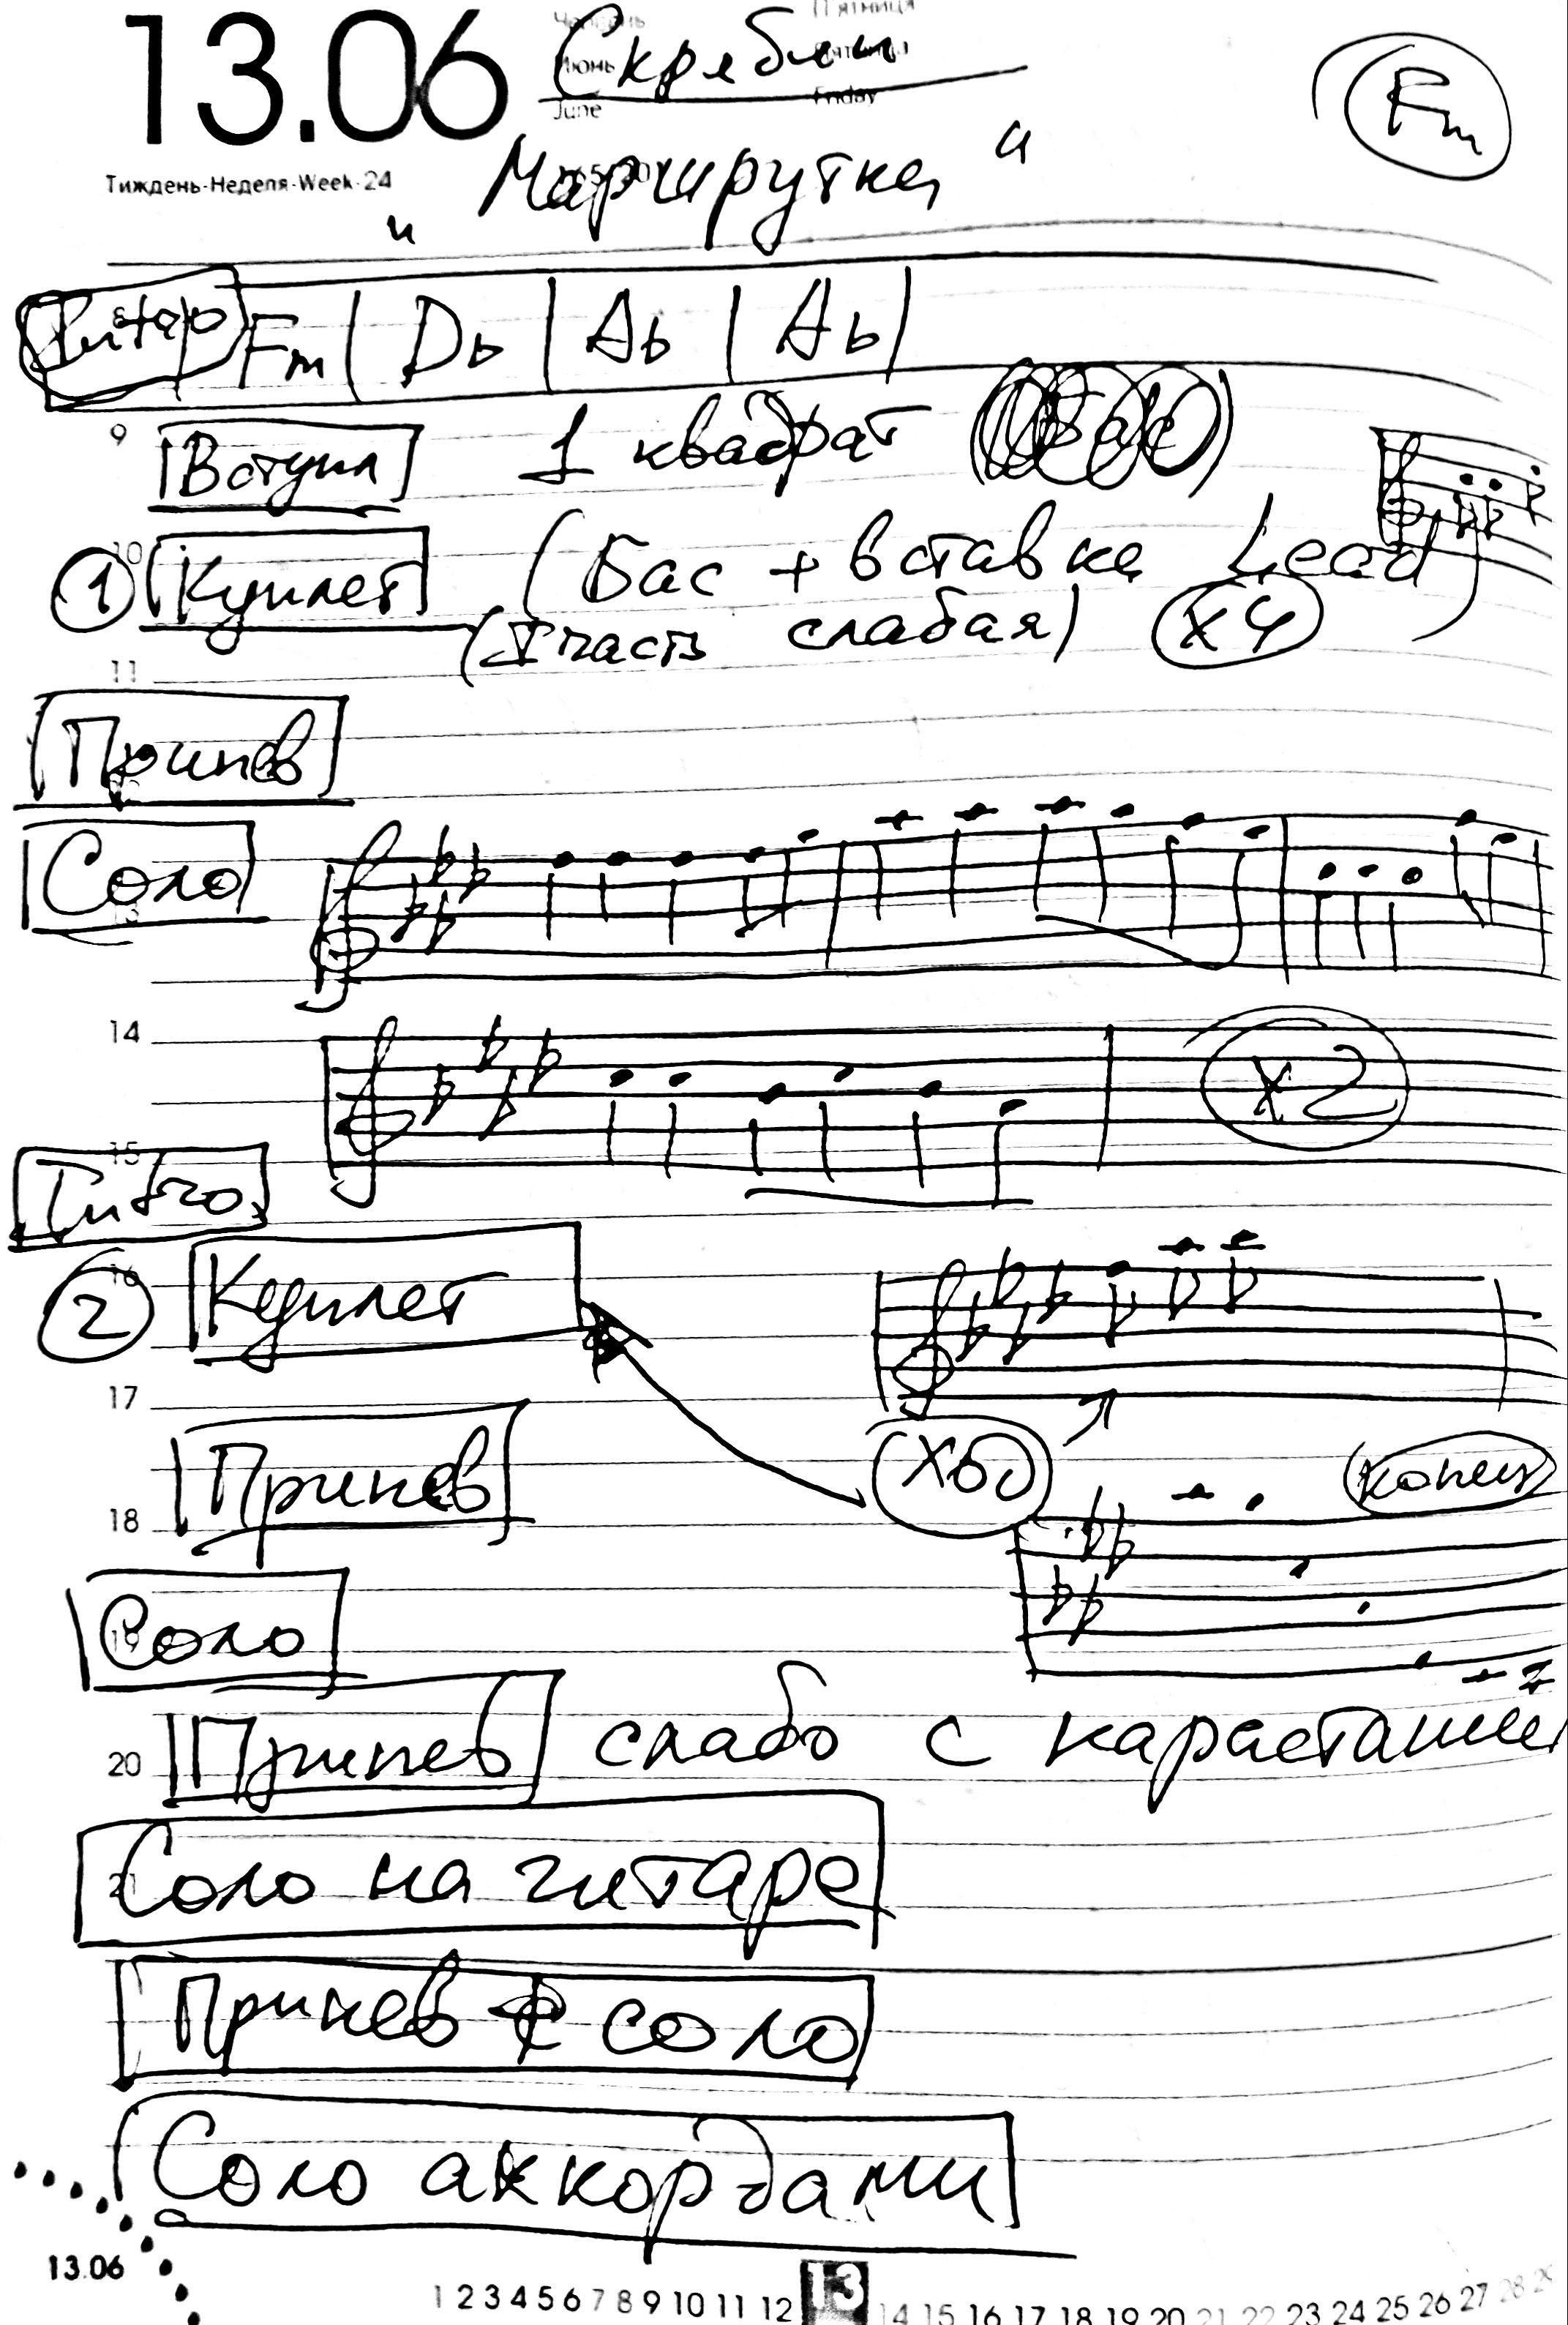 13.06
Червень П'ятниця
Июнь Пятница
June Friday
Скрябин
Fm
Тиждень-Неделя-Week-24
"Маршрутка"
Fm | Db | Ab | Ab |
9 Вступл 1 квадрат
10 ① Куплет (Бас + вставка Lead)
(I часть слабая) X4
11
Припев
Соло
14
X2
15
Intro
16 ② Куплет
17
Ход
Припев конец
18
19 Соло
20 Припев слабо с нарастание
21 Соло на гитаре
Припев с соло
Соло аккордами
13.06
1 2 3 4 5 6 7 8 9 10 11 12 13 14 15 16 17 18 19 20 21 22 23 24 25 26 27 28 29